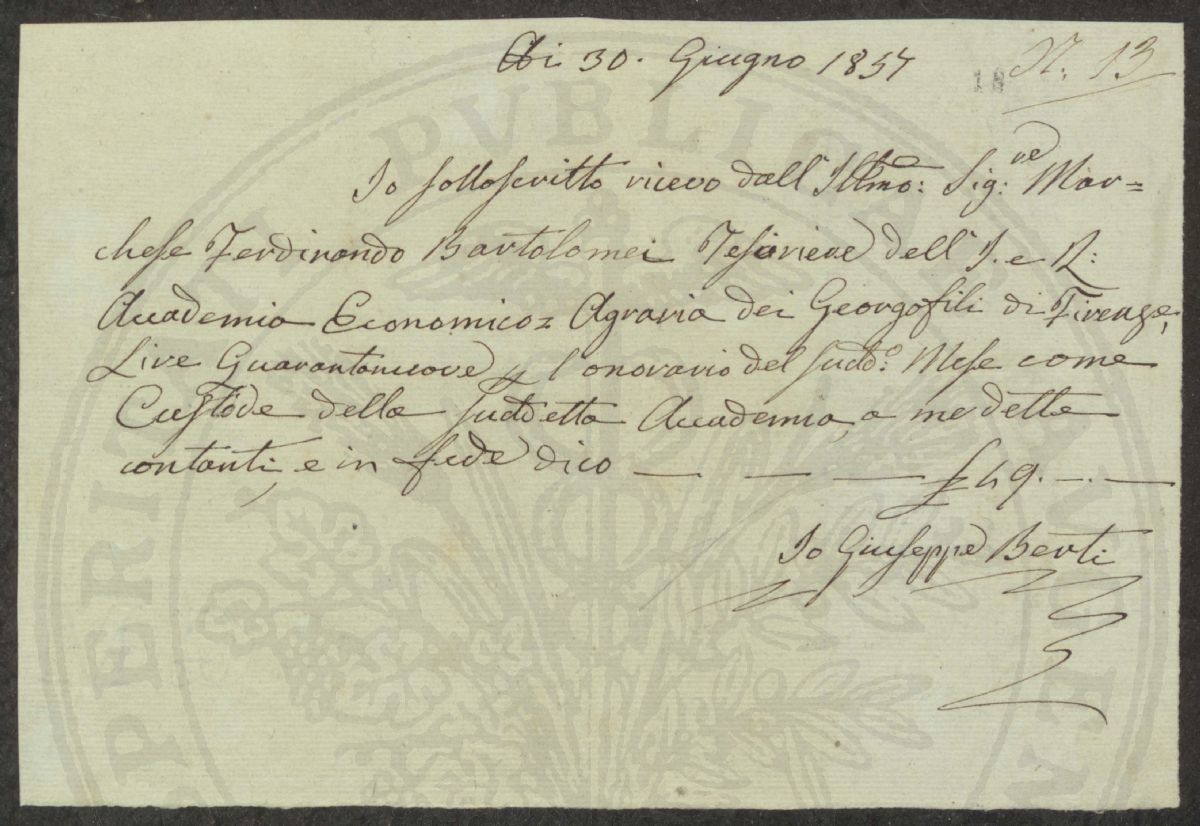 Adi 30. Giugno 1857
N. 13
18
Io sottoscritto ricevo dall' Illmo: Sig:re Mar=
chese Ferdinando Bartolomei Tesoriere dell' I. e R:
Accademia Economico= Agraria dei Georgofili di Firenze,
Lire Quarantanuove p l'onorario del sudd.o Mese come
Custode della suddetta Accademia, a me dette
contanti, e in fede dico — — — £ 49. — . —
Io Giuseppe Berti
PERITATI PUBLICAE